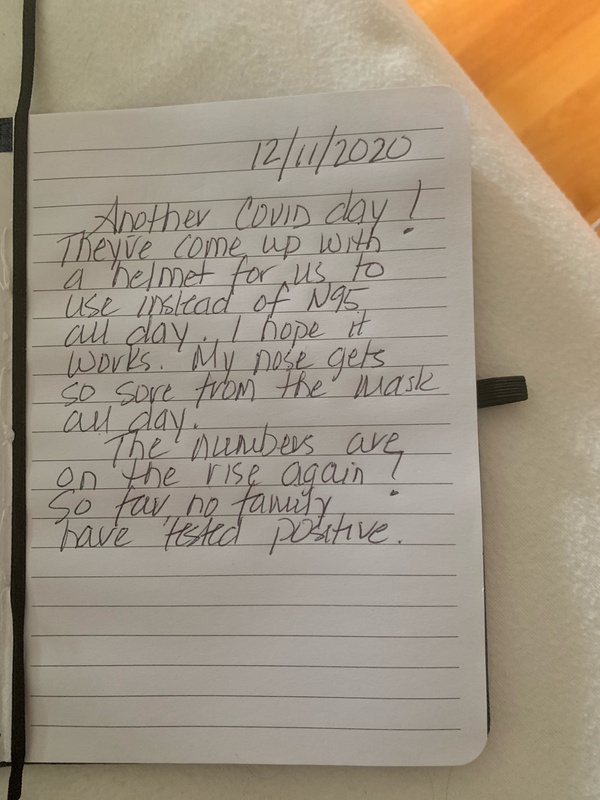 12/11/2020
Another Covid day!
They've come up with
a helmet for us to
use instead of N95
all day. I hope it
works. My nose gets
so sore from the mask
all day.
The numbers are
on the rise again!
So far no family
have tested positive.